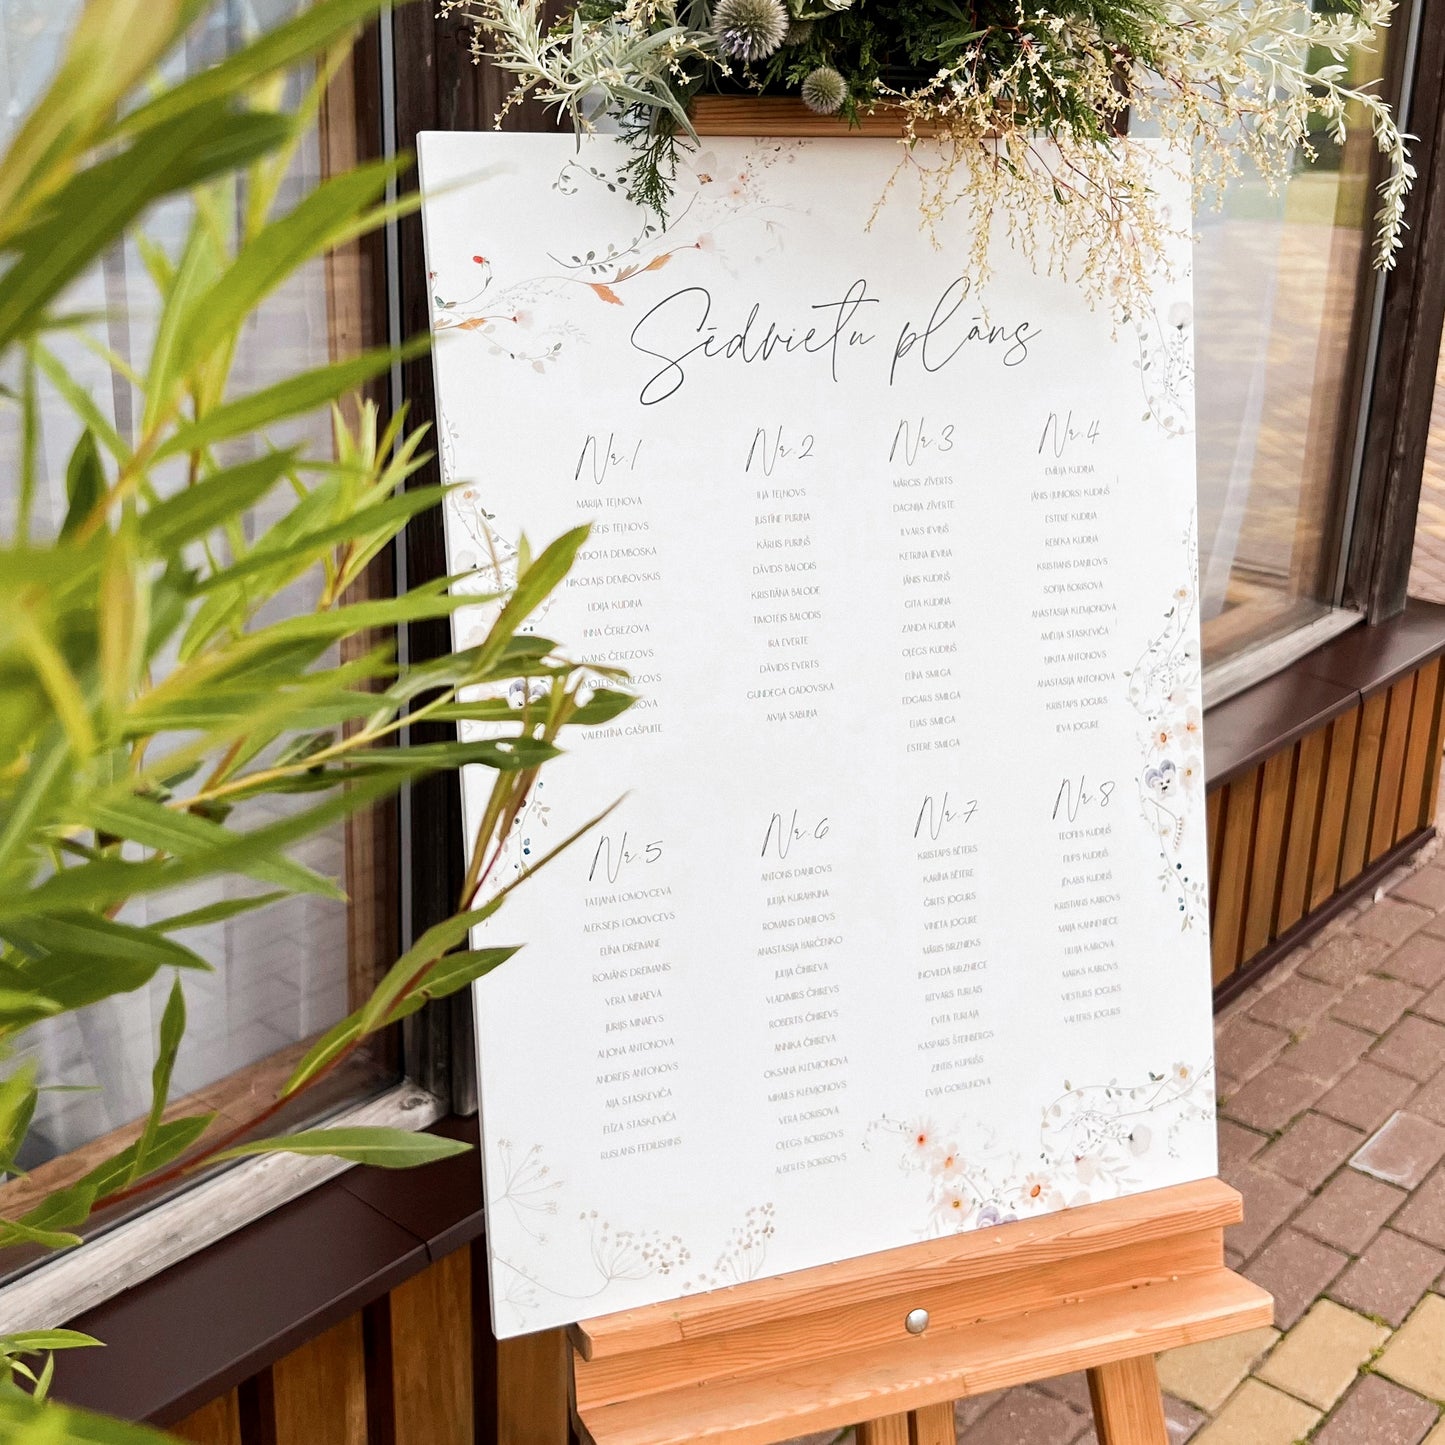 Sēdvietu plāns
Nr.1
MARIJA TEĻNOVA
TEĻNOVS
DEMBOSKA
NIKOLAJS DEMBOVSKIS
LIDIJA KUDIŅA
INNA ČEREZOVA
IVANS ČEREZOVS
ČEREZOVS
VALENTĪNA GAŠPUITE
Nr.2
IĻJA TEĻNOVS
JUSTĪNE PURIŅA
KĀRLIS PURIŅŠ
DĀVIDS BALODIS
KRISTIĀNA BALODE
TIMOTEJS BALODIS
IRA EVERTE
DĀVIDS EVERTS
GUNDEGA GADOVSKA
AIVIJA SABUĻNA
Nr.3
MĀRCIS ZĪVERTS
DAGNIJA ZĪVERTE
ILVARS IEVIŅŠ
KETRINA IEVIŅA
JĀNIS KUDIŅŠ
GITA KUDIŅA
ZANDA KUDIŅA
OĻEGS KUDIŅŠ
ELĪNA SMILGA
EDGARS SMILGA
ELIAS SMILGA
ESTERE SMILGA
Nr.4
EMĪLIJA KUDIŅA
JĀNIS (JUNIORS) KUDIŅŠ
ESTERE KUDIŅA
REBEKA KUDIŅA
KRISTIANS DANILOVS
SOFIJA BORISOVA
ANASTASIJA KLEMJONOVA
AMĒLIJA STASKEVIČA
NIKITA ANTONOVS
ANASTASIJA ANTONOVA
KRISTAPS JOGURS
IEVA JOGURE
Nr.5
TATJANA LOMOVCEVA
ALEKSEJS LOMOVCEVS
ELĪNA DREIMANE
ROMĀNS DREIMANIS
VERA MINAEVA
JURIJS MINAEVS
AĻJONA ANTONOVA
ANDREJS ANTONOVS
AIJA STASKEVIČA
ELĪZA STASKEVIČA
RUSLANS FEDJUSHINS
Nr.6
ANTONS DANILOVS
JULIJA KURAHKINA
ROMANS DANILOVS
ANASTASIJA HARČENKO
JULIJA ČIHIREVA
VLADIMIRS ČIHIREVS
ROBERTS ČIHIREVS
ANNIKA ČIHIREVA
OKSANA KLEMJONOVA
MIHAILS KLEMJONOVS
VERA BORISOVA
OĻEGS BORISOVS
ALBERTS BORISOVS
Nr.7
KRISTAPS BĒTERS
KARĪNA BĒTERE
ĢIRTS JOGURS
VINETA JOGURE
MĀRIS BRZNIEKS
INGVILDA BRZNIECE
RITVARS TURLAIS
EVITA TURLAJA
KASPARS ŠTEINBERGS
ZINTIS KUPRIŠS
EVIJA GORBUNOVA
Nr.8
TEOFILS KUDIŅŠ
FILIPS KUDIŅŠ
JĒKABS KUDIŅŠ
KRISTIANS KAIROVS
MAIJA KANNENIECE
LILIJA KAIROVA
MARKS KAIROVS
VIESTURS JOGURS
VALTERS JOGURS